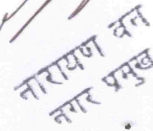 नारायण वन
नगर प्रमुख